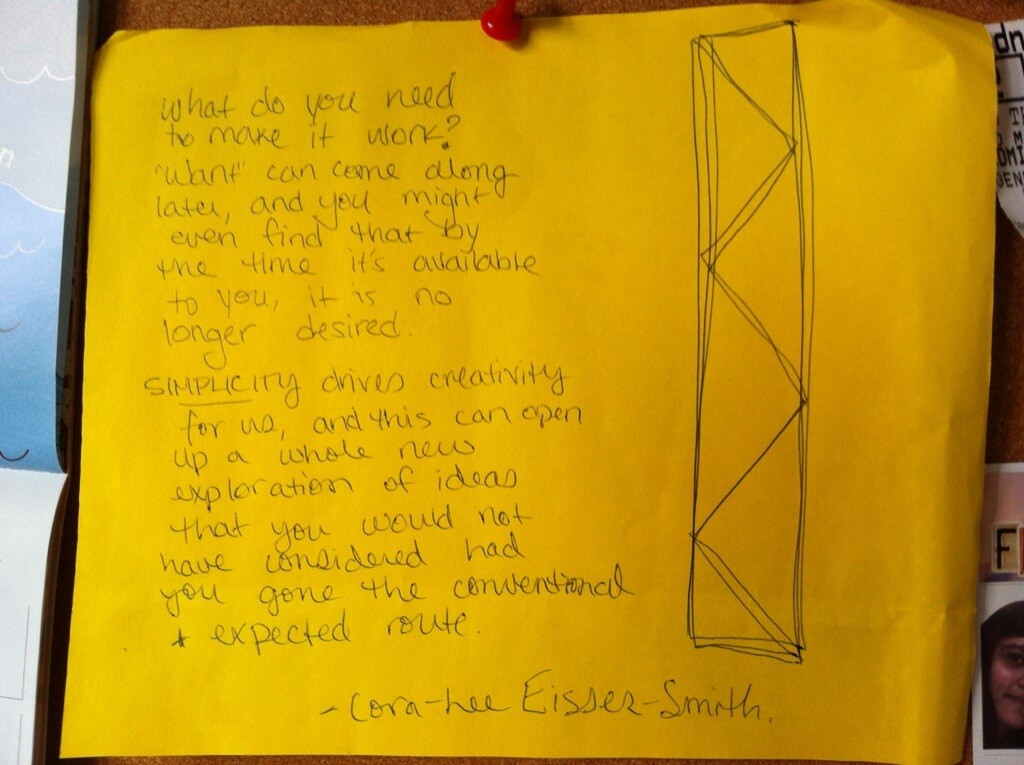 what do you need
to make it work?
"want" can come along
later, and you might
even find that by
the time it's available
to you, it is no
longer desired.
SIMPLICITY drives creativity
for us, and this can open
up a whole new
exploration of ideas
that you would not
have considered had
you gone the conventional
+ expected route.
- Cora-Lee Eisses-Smith.
dn
F